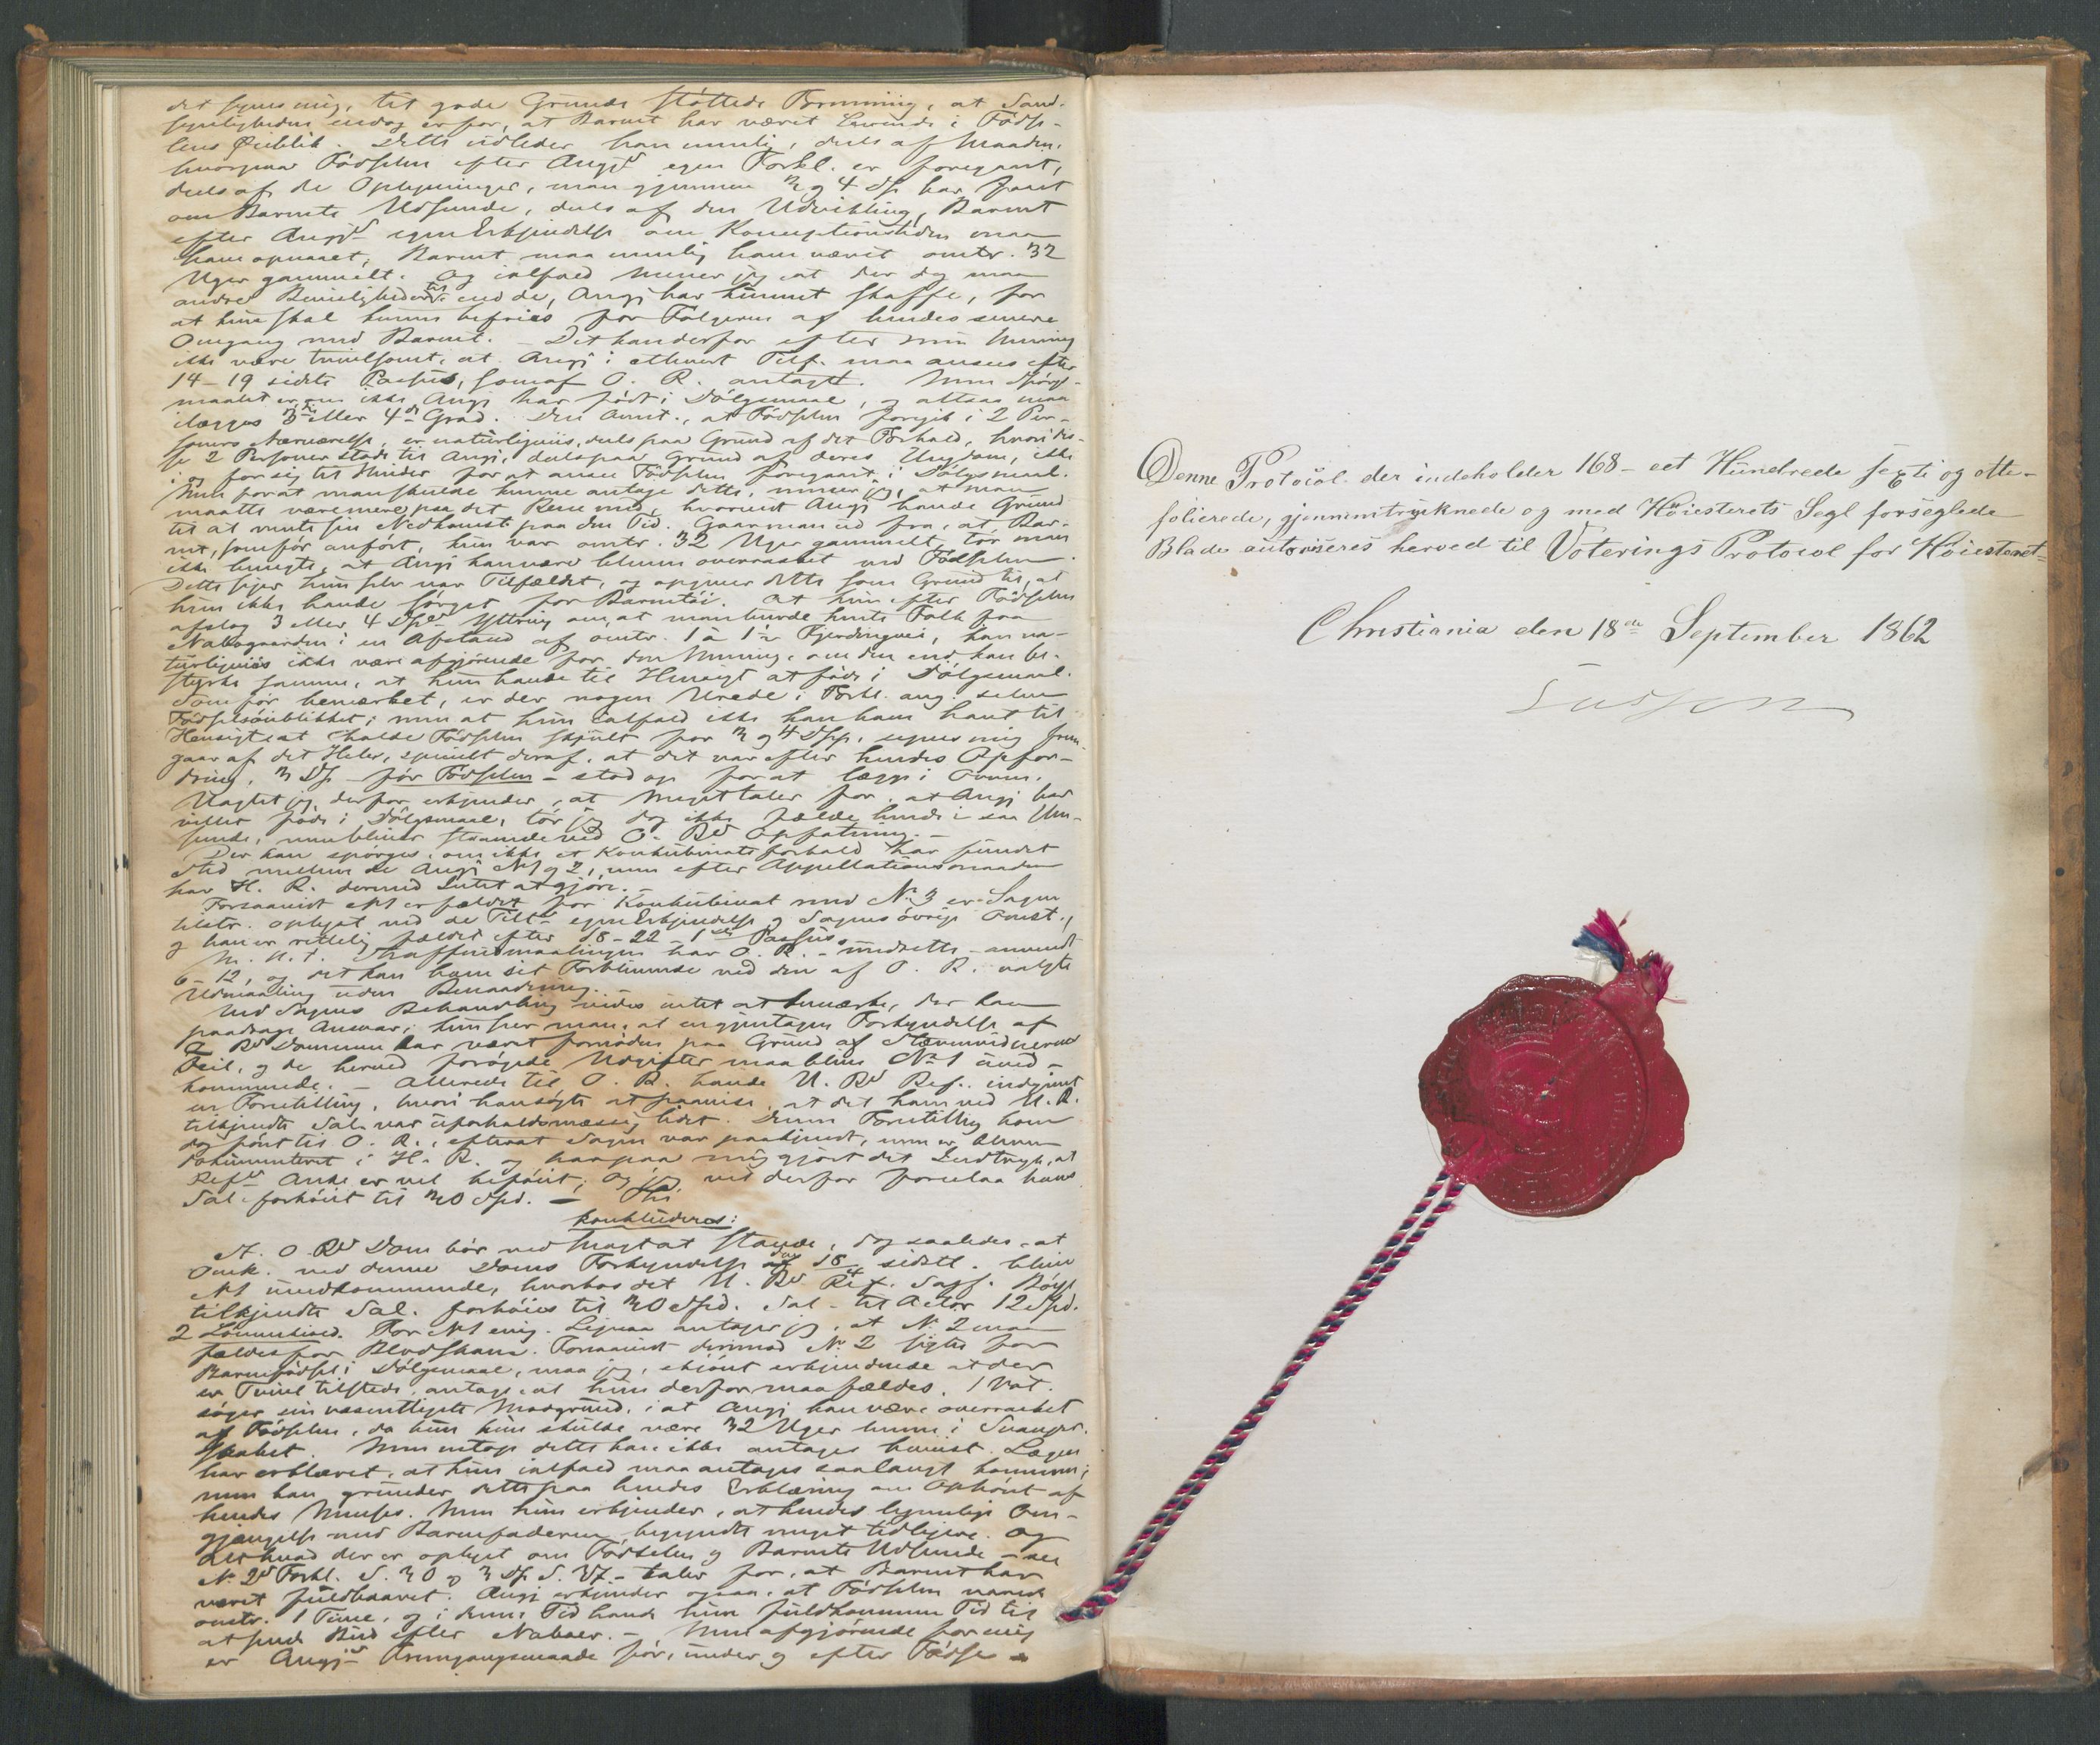 det synes mig, til gode Grunde støttede Formening, at Sand-
synligheden endog er for, at Barnet har været levende i Føds-
lens Øieblik. Dette udleder han nemlig, deels af Maaden,
hvorpaa Fødslen efter Angjs egen Forkl. er foregaaet,
deels af de Oplysninger, man gjennem 3 og 4 Dp. har faaet
om Barnets Udseende, deels af den Udvikling, Barnet
efter Angjs egen Erkjendelse om Konceptionstiden maa
have opnaaet; Barnet maa nemlig have været omtr. 32
Uger gammelt. Og ialfald mener jeg at der dog maa
andre Beviisligheder til end de, Angj. har kunnet skaffe, for
at hun skal kunne befries for Følgerne af hendes senere
Omgang med Barnet. - Det kan derfor efter min Mening
ikke være tvivlsomt, at Angj. i ethvert Tilf. maa ansees efter
14-19 sidste Passus, som af O. R. antaget. Men Spørgs-
maalet er om ikke Angj. har født i Dølgsmaal, og altsaa maa
ilægges 3die eller 4de Grad. Den Omst., at Fødslen foregik i 2 Per-
soners Nærværelse, er naturligviis, deels paa Grund af det Forhold, hvori dis-
se 2 Personer stode til Angj., deels paa Grund af deres Ungdom, ikke
i og for sig til Hinder for at ansee Fødslen foregaaet i Dølgsmaal.
Men forat man skulde kunne antage dette, mener jeg, at man
maatte være mere paa det Rene med, hvorvidt Angj. havde Grund
til at vente sin Nedkomst paa den Tid. Gaar man ud fra, at Bar-
net, som før anført, kun var omtr. 32 Uger gammelt, tør man
ikke benegte, at Angj. kan være bleven overrasket ved Fødslen.
Dette siger hun selv var Tilfældet, og opgiver dette som Grund til, at
hun ikke havde sørget for Barnetøi. At hun efter Fødslen
afslog 3 eller 4 Dps Yttring om, at man burde hente Folk fra
Nabogaarden i en Afstand af omtr. 1 à 1½ Fjerdingvei, kan na-
turligviis ikke være afgjørende for den Mening, om den end kan be-
styrke samme, at hun havde til Hensigt at føde i Dølgsmaal.
Som før bemærket, er der nogen Urede i Forkl. ang. selve
Fødselsøieblikket; men at hun ialfald ikke kan have havt til
Hensigt at holde Fødslen skjult for 3 og 4 Dpp. synes mig frem-
gaar af det Hele, specielt deraf, at det var efter hendes Opfor-
dring, 3 Dp. - før Fødslen - stod op for at lægge i Ovnen.
Uagtet jeg derfor erkjender, at Meget taler for, at Angj. har
villet føde i Dølgsmaal, tør jeg dog ikke fælde hende i saa Hen-
seende, men bliver staaende ved O. Rs Opfatning. -
Der kan spørges, om ikke et Konkubinatsforhold har fundet
Sted mellem de Angj. N 1 og 2, men efter Appellationsmaaden
har H. R. dermed Intet at gjøre.
Forsaavidt N 1 er fældet for Konkubinat med No 3 er Sagen
tilstr. oplyst ved de Tilts egen Erkjendelse og Sagens øvrige Omst.,
og han er rettelig fældet efter 18-22-1ste Passus.
M. H. t. Straffeudmaalingen har O. R. - mdretts - anvendt
6-12, og det kan have sit Forblivende ved den af O. R. valgte
Udmaaling uden Benaadning.
Ved Sagens Behandling vides intet at bemærke, der kan
paadrage Ansvar; kun seer man, at en gjentagen Forkyndelse af
O. Rs Dommen har været fornøden paa Grund af Stævnevidnernes
Feil, og de herved forøgede Udgifter maa blive N 1 uved-
kommende. - Allerede til O. R. havde U. Rs Ref. indgivet
en Forestilling, hvori han søgte at paavise, at det ham ved U. R.
tilkjendte Sal. var uforholdsmæssig lidet. Denne Forestilling kom
dog først til O. R., efterat Sagen var paakjendt, men er bleven
dokumenteret i H. R. og har paa mig gjort det Indtryk, at
Refs Anke er vel beføiet; og jeg vil derfor foreslaa hans
Sal. forhøiet til 30 Spd. - Thi
konkluderes:
At O. Rs Dom bør ved Magt at stande, dog saaledes at
Omk. ved denne Doms Forkyndelse den 18/4 sidstl. blive
N 1 uvedkommende, hvorhos det U. Rs Ref. Sagf. Bøgh
tilkjendte Sal. forhøies til 30 Spd. Sal. til Actor 12 Spd.
2 Lömmskiold. For N 1 enig. Ligesaa antager jeg, at No 2 maa
fældes for Blodskam. Forsaavidt derimod No 2 sigtes for
Barnefødsel i Dølgsmaal, maa jeg, skjønt erkjendende at der
er Tvivl tilstede, antage, at hun derfor maa fældes. 1 Vot.
søger sin væsentligste Modgrund, i at Angj. kan være overrasket
af Fødslen, da hun kun skulde være 32 Uger henne i Svanger-
skabet. Men netop dette kan ikke antages beviist. Lægen
har erklæret, at hun ialfald maa antages saalangt kommen;
men han grunder dette paa hendes Erklæring om Ophøret af
hendes Menses. Men hun erkjender, at hendes legemlige Om-
gjængelse med Barnefaderen begyndte meget tidligere. Og
Alt hvad der er oplyst om Fødselen og Barnets Udseende - see
No 2s Forkl. S. 30 og 3 Dp. S. 37 - taler for, at Barnet har
været fuldbaaret. Angj. erkjender ogsaa, at Fødslen varede
omtr. 1 Time, og i denne Tid havde hun fuldkommen Tid til
at sende Bud efter Naboer. - Men afgjørende for mig
er Angjs Fremgangsmaade før, under og efter Fødse-
Denne Protocol der indeholder 168 - eet Hundrede sexti og otte -
folierede, gjennemtrukne og med Høiesterets Segl forseglede
Blade autoriseres herved til Voterings Protocol for Høiesteret.
Christiania den 18de September 1862
Lasson